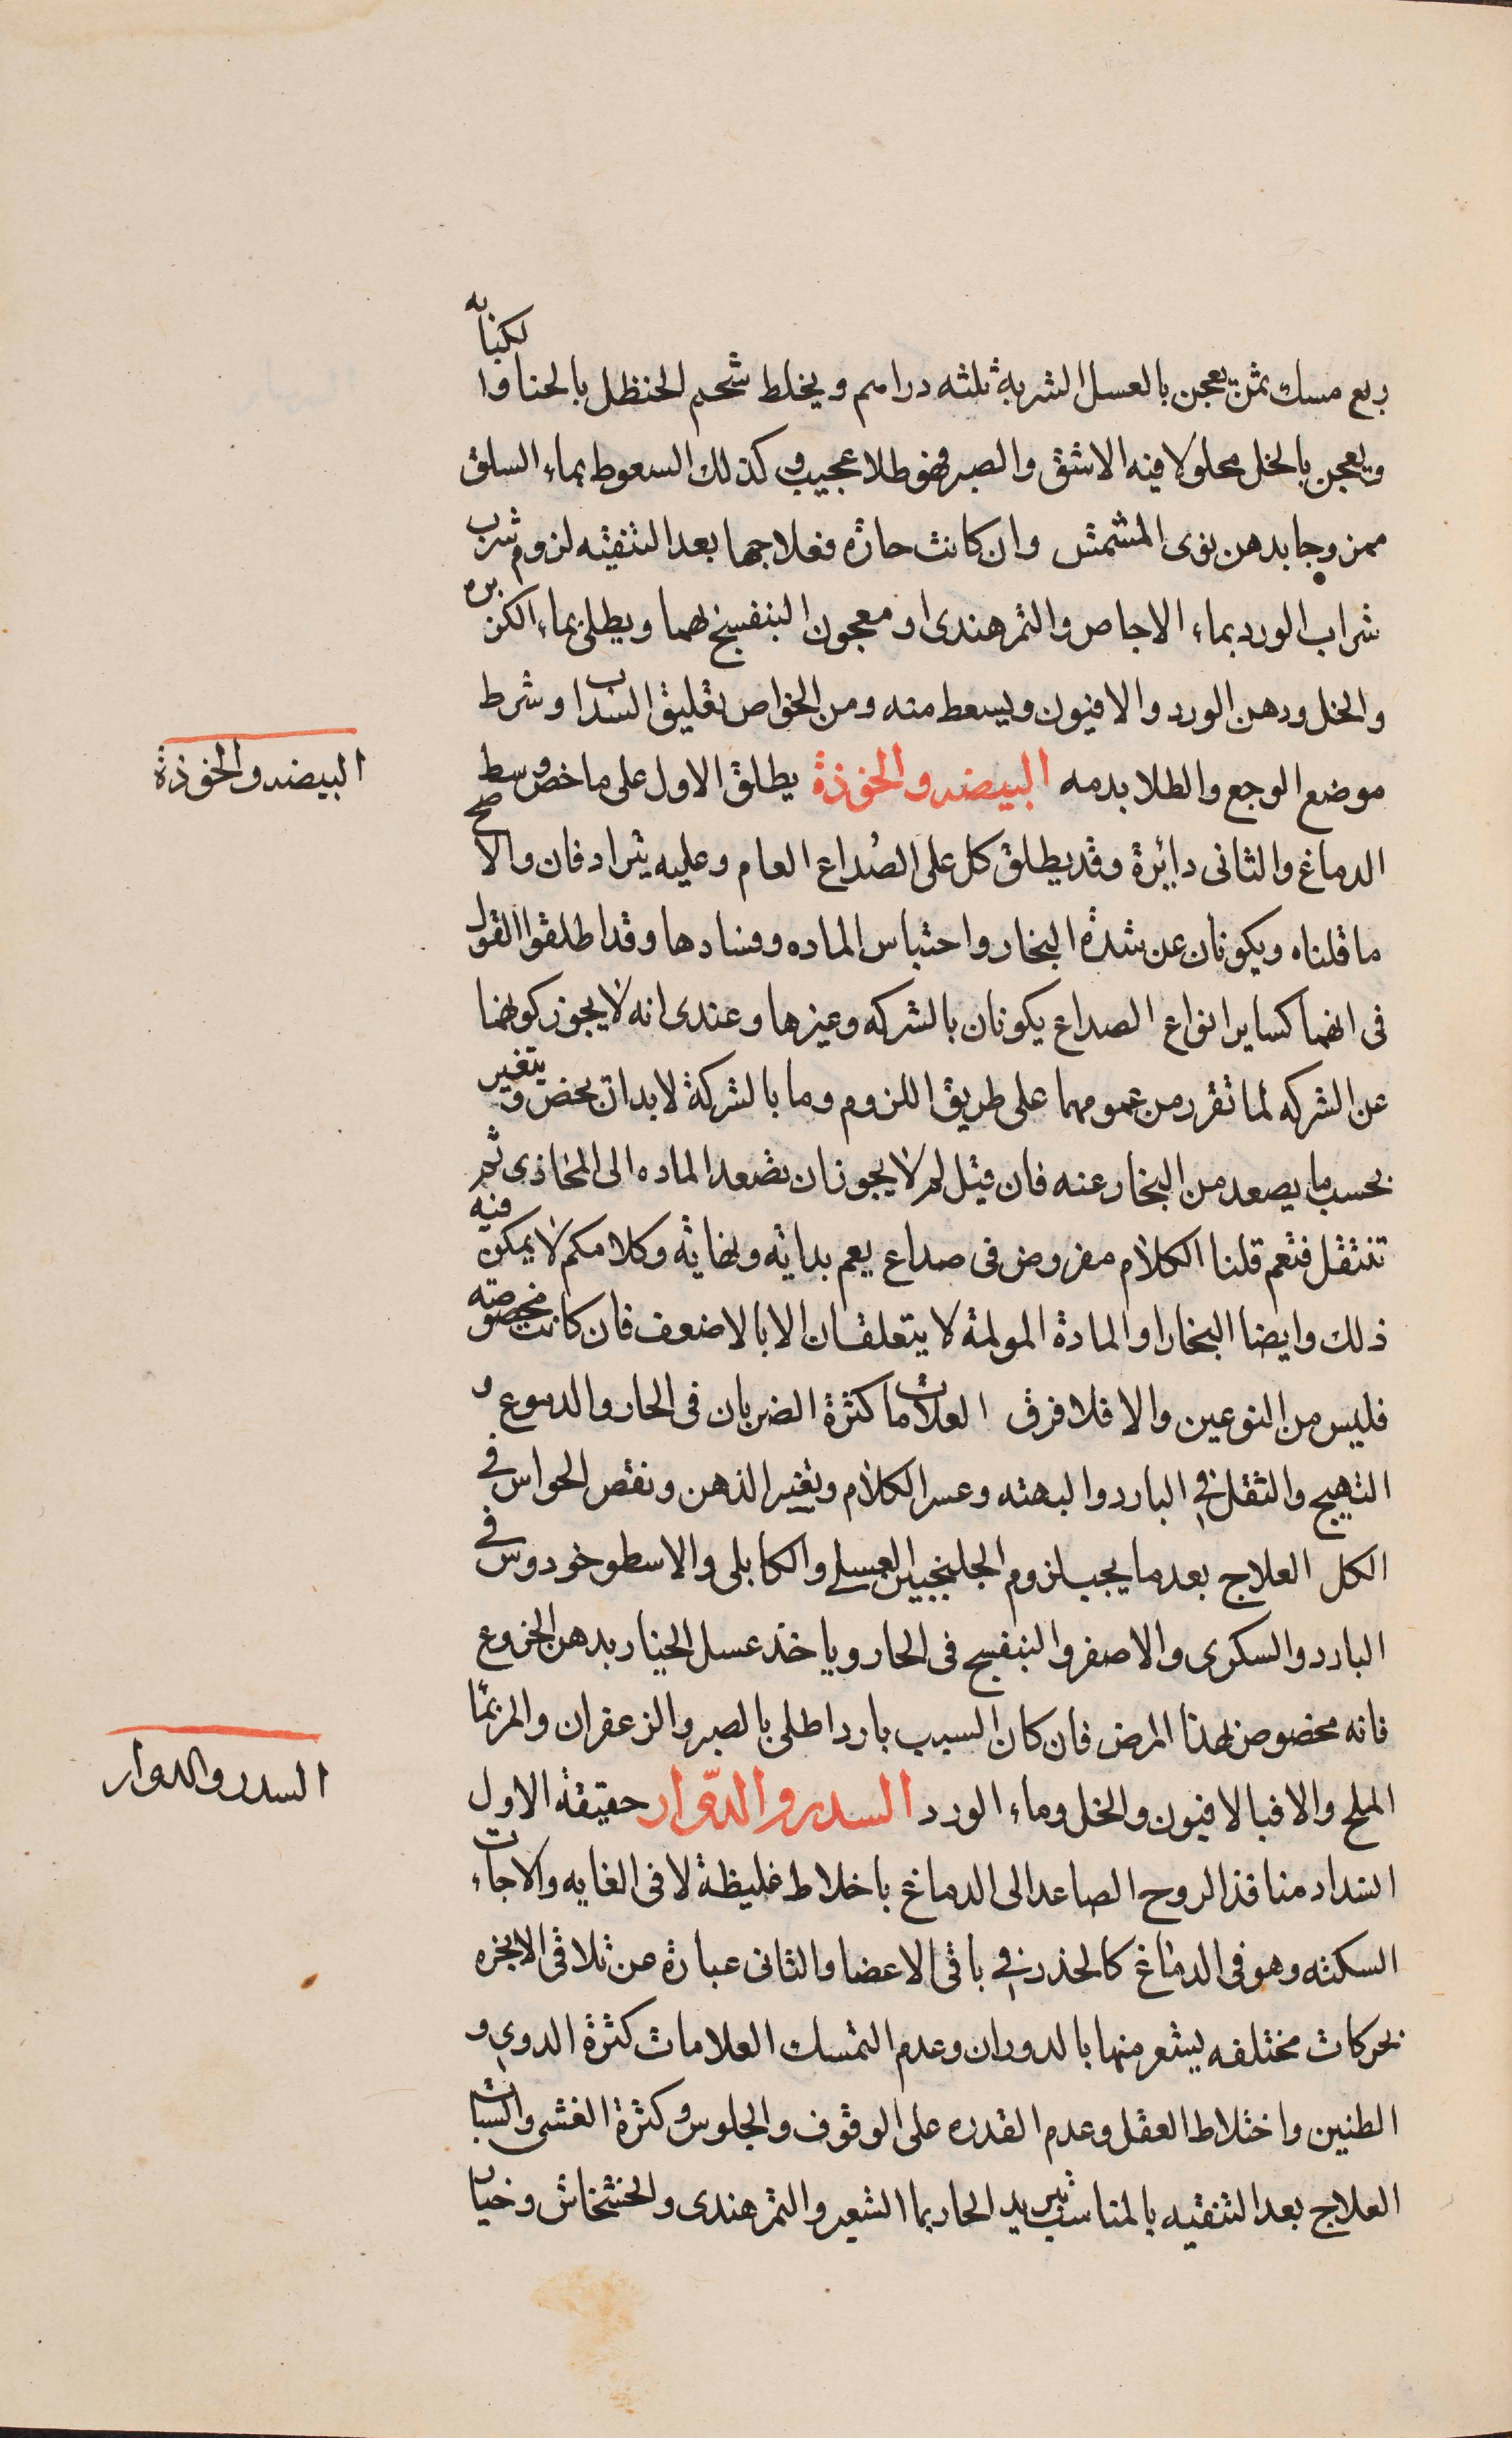 ربع مسك ثمن يعجن بالعسل الشربة ثلثه دراهم ويخلط شحم الحنظل بالحنا والكبابه
ويعجن بالخل محلولا فيه الاشق والصبر فهو طلا عجيب وكذلك السعوط بماء السلق
ممزوجا بدهن نوى المشمش وان كانت حارة فعلاجها بعد التنقيه لزوم شرب
شراب الورد بماء الاجاص والتمر هندى او معجون البنفسج لهما ويطلى بماء الكزبره
والخل ودهن الورد والافيون ويسعط منه ومن الخواص تعليق السداب وشرط
موضع الوجع والطلا بدمه البيضه والخوذة يطلق الاول على ما خص وسط
الدماغ والثانى دايرة وقد يطلق كل على الصداع العام وعليه يترادفان والاصح
ما قلناه ويكونان عن شدة البخار واحتباس الماده وفسادها وقد اطلقوا القول
فى انهما كساير انواع الصداع يكونان بالشركه وغيرها وعندى انه لا يجوز كونهما
عن الشركه لما تقرر من عمومهما على طريق اللزوم وما بالشركة لا بد ان يخص ويتغير
بحسب ما يصعد من البخار عنه فان قيل لم لا يجوز ان تصعد الماده الى المحاذى ثم
تنتقل فتعم قلنا الكلام مفروض فى صداع يعم بدايته ونهايته وكلامكم لا يمكن فيه
ذلك وايضا البخار او المادة المولمة لا يتعلقان الا بالاضعف فان كانت مخصوصته
فليس من النوعين والا فلا فرق العلامات كثرة الضربان فى الحار والدموع و
التهيج والثقل فى البارد والبهته وعسر الكلام وتغير الذهن ونقص الحواس فى
الكل العلاج بعد ما يجب لزوم الجلنجبين العسلى والكابلى والاسطوخودوس فى
البارد والسكرى والاصفر والبنفسج فى الحار وياخذ عسل الخيار بدهن الخروع
فانه مخصوص لهذا المرض فان كان السبب باردا طلى بالصبر والزعفران والمر بما
الملح والا فبالافيون والخل وماء الورد السدر والدوار حقيقة الاول
انسداد منافذ الروح الصاعد الى الدماغ باخلاط غليظة لا فى الغايه والا جاءت
السكته وهو فى الدماغ كالخدر فى باقى الاعضا والثانى عبارة عن تلاقى الابخره
بحركات مختلفه يشعر منها بالدوران وعدم التمسك العلامات كثرة الدوي و
الطنين واختلاط العقل وعدم القدره على الوقوف والجلوس وكثرة الغشى والسبات
العلاج بعد التنقيه بالمناسب تبريد الحار بما الشعير والتمر هندى والخشخاش وخيار
البيضه والخوذة
السدر والدوار